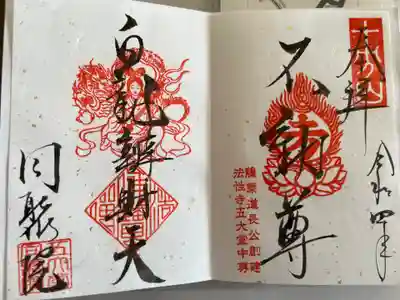 奉拝
不動尊
藤原道長公創建
法性寺五大堂中尊
令和四年
白蛇辨財天
同聚院